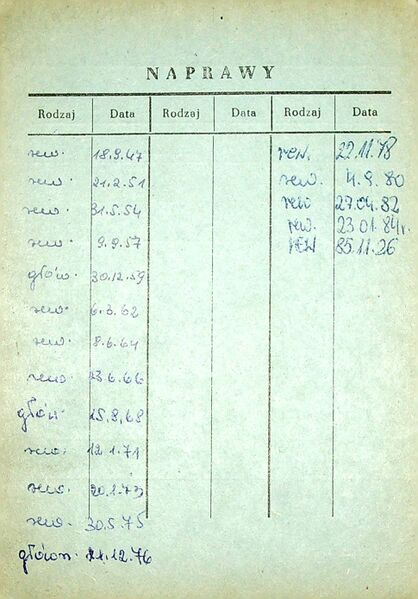 NAPRAWY
Rodzaj Data Rodzaj Data Rodzaj Data
rew. 18.9.47
rew. 21.2.51
rew. 31.5.54
rew. 9.9.57
głów. 30.12.59
rew. 6.3.62
rew. 8.6.64
rew. 23.6.66
głów. 15.8.68
rew. 12.1.71
rew. 20.2.73
rew. 30.5.75
główn. 21.12.76
rew. 22.11.78
rew. 4.9.80
rew 27.04.82
rew. 23.01.84r.
rew 85.11.26